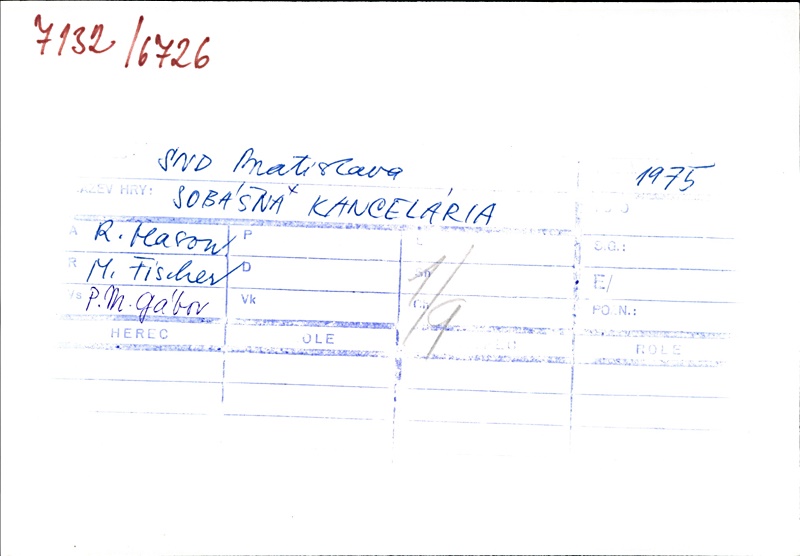 7132/6726
SND Bratislava 1975
NÁZEV HRY: SOBÁŠNA KANCELÁRIA
A R. Mason P
R M. Fischer D S.G.:
Vs P.M. Gábor Vk 1/9 E/
PO.N.:
HEREC ROLE